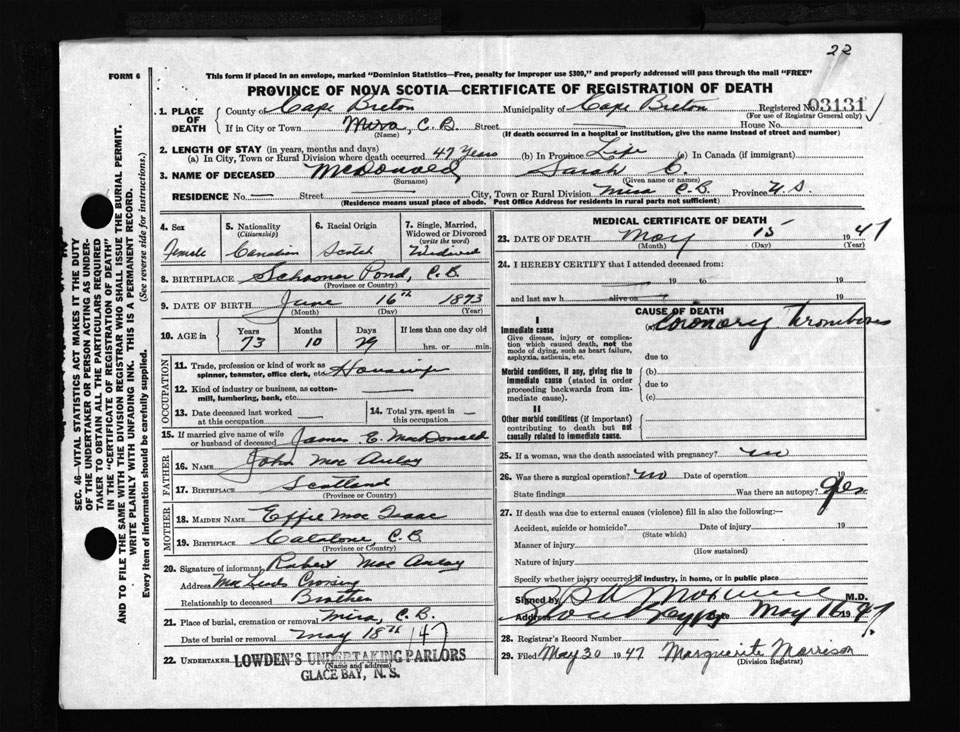 22
FORM 6
This form if placed in an envelope, marked "Dominion Statistics—Free, penalty for improper use $300," and properly addressed will pass through the mail "FREE"
PROVINCE OF NOVA SCOTIA—CERTIFICATE OF REGISTRATION OF DEATH
1. PLACE OF DEATH
County of Cape Breton Municipality of Cape Breton Registered No. 03131
(For use of Registrar General only)
If in City or Town Mira, C.B. Street House No.
(Name) (If death occurred in a hospital or institution, give the name instead of street and number)
2. LENGTH OF STAY (in years, months and days)
(a) In City, Town or Rural Division where death occurred 47 Years (b) In Province Life (c) In Canada (if immigrant)
3. NAME OF DECEASED McDonald, Sarah C.
(Surname) (Given name or names)
RESIDENCE No. — Street City, Town or Rural Division Mira C.B. Province N.S.
(Residence means usual place of abode. Post Office Address for residents in rural parts not sufficient)
4. Sex
Female
5. Nationality
(Citizenship)
Canadian
6. Racial Origin
Scotch
7. Single, Married, Widowed or Divorced
(write the word)
Widowed
8. BIRTHPLACE Schooner Pond, C.B.
(Province or Country)
9. DATE OF BIRTH June 16th 1873
(Month) (Day) (Year)
10. AGE in
Years Months Days If less than one day old
73 10 29 hrs. or min.
OCCUPATION
11. Trade, profession or kind of work as spinner, teamster, office clerk, etc. Housewife
12. Kind of industry or business, as cotton-mill, lumbering, bank, etc.
13. Date deceased last worked at this occupation —
14. Total yrs. spent in this occupation —
15. If married give name of wife or husband of deceased James E. MacDonald
FATHER
16. NAME John Mac Aulay
17. BIRTHPLACE Scotland
(Province or Country)
MOTHER
18. MAIDEN NAME Effie Mac Isaac
19. BIRTHPLACE Catalone, C.B.
(Province or Country)
20. Signature of informant Robert Mac Aulay
Address Crossing
Relationship to deceased Brother
21. Place of burial, cremation or removal Mira, C.B.
Date of burial or removal May 18th /47
22. UNDERTAKER LOWDEN'S UNDERTAKING PARLORS
(Name and address)
GLACE BAY, N.S.
MEDICAL CERTIFICATE OF DEATH
23. DATE OF DEATH May 15 1947
(Month) (Day) (Year)
24. I HEREBY CERTIFY that I attended deceased from:
19 to 19
and last saw h alive on 19
CAUSE OF DEATH
I
Immediate cause
Give disease, injury or complication which caused death, not the mode of dying, such as heart failure, asphyxia, asthenia, etc.
(a) Coronary Thrombosis
due to
Morbid conditions, if any, giving rise to immediate cause (stated in order proceeding backwards from immediate cause).
(b)
due to
(c)
II
Other morbid conditions (if important) contributing to death but not causally related to immediate cause.
25. If a woman, was the death associated with pregnancy? no
26. Was there a surgical operation? no Date of operation 19
State findings Was there an autopsy? yes
27. If death was due to external causes (violence) fill in also the following:—
Accident, suicide or homicide? Date of injury 19
(State which)
Manner of injury
(How sustained)
Nature of injury
Specify whether injury occurred in industry, in home, or in public place
Signed by M.D.
Address May 16 1947
28. Registrar's Record Number
29. Filed May 20 1947 Marguerite Morrison
(Division Registrar)
SEC. 46—VITAL STATISTICS ACT MAKES IT THE DUTY
OF THE UNDERTAKER OR PERSON ACTING AS UNDER-
TAKER TO OBTAIN ALL THE PARTICULARS REQUIRED
IN THE "CERTIFICATE OF REGISTRATION OF DEATH"
AND TO FILE THE SAME WITH THE DIVISION REGISTRAR WHO SHALL ISSUE THE BURIAL PERMIT.
WRITE PLAINLY WITH UNFADING INK. THIS IS A PERMANENT RECORD.
Every item of information should be carefully supplied. (See reverse side for instructions.)